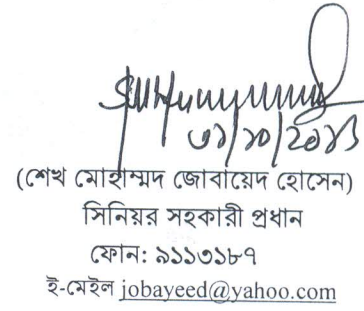 ৩১/১০/২০১৩
(শেখ মোহাম্মদ জোবায়েদ হোসেন)
সিনিয়র সহকারী প্রধান
ফোন: ৯১১৩১৮৭
ই-মেইল jobayeed@yahoo.com